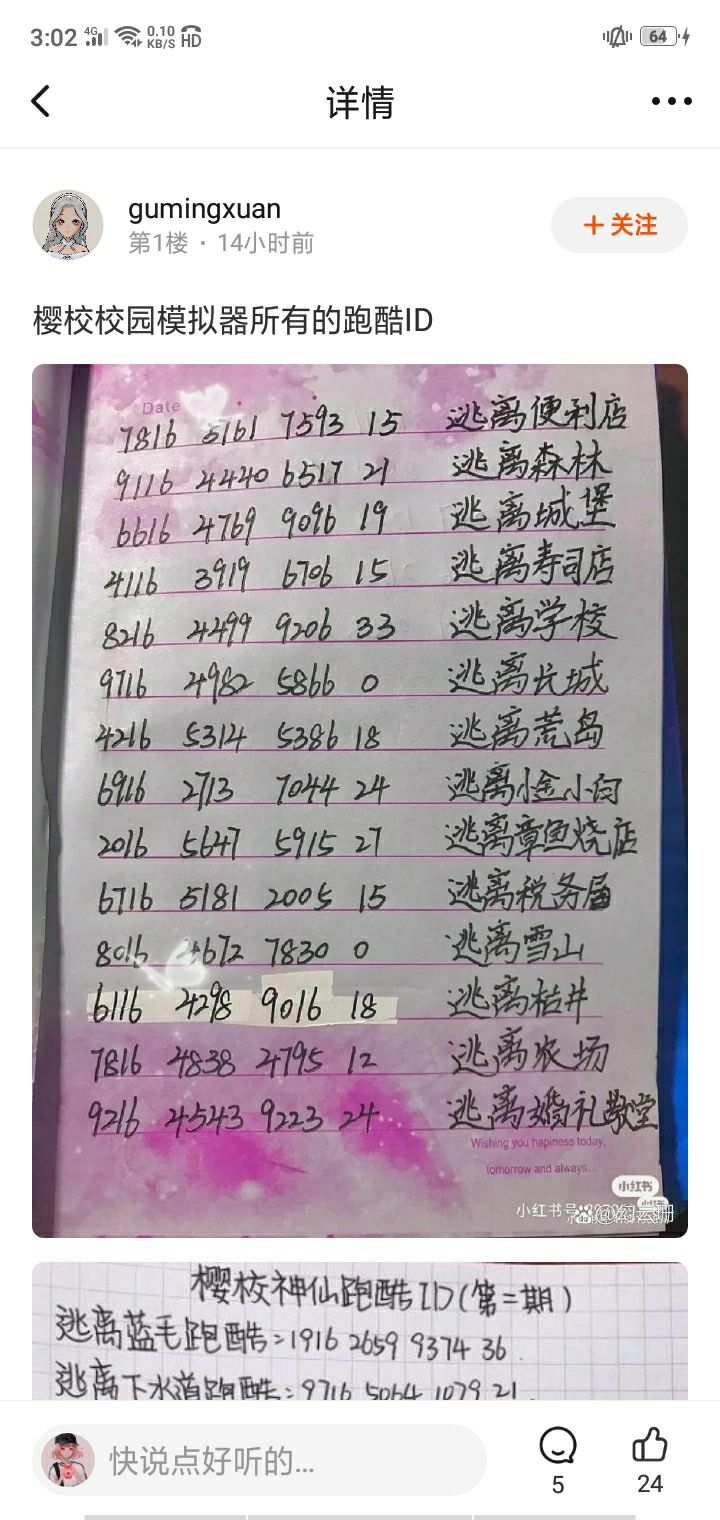 3:02 4G 0.10 KB/S HD 64
详情
gumingxuan
+关注
第1楼 · 14小时前
樱校校园模拟器所有的跑酷ID
Date
7816 5161 7593 15 逃离便利店
9116 4440 6517 21 逃离森林
6616 4769 9096 19 逃离城堡
4116 3919 6706 15 逃离寿司店
8216 4499 9206 33 逃离学校
9716 4982 5866 0 逃离长城
4216 5314 5386 18 逃离荒岛
6916 2713 7044 24 逃离小金小向
2016 5647 5915 27 逃离章鱼烧店
6716 5181 2005 15 逃离税务局
8016 4672 7830 0 逃离雪山
6116 4298 9016 18 逃离枯井
7816 4838 4795 12 逃离农场
9216 4543 9223 24 逃离婚礼教堂
Wishing you hapiness today,
tomorrow and always...
小红书
小红书号
樱校神仙跑酷ID(第二期)
逃离蓝毛跑酷:1916 2659 9374 36
逃离下水道跑酷:9716 5064 1079 21
快说点好听的...
5 24